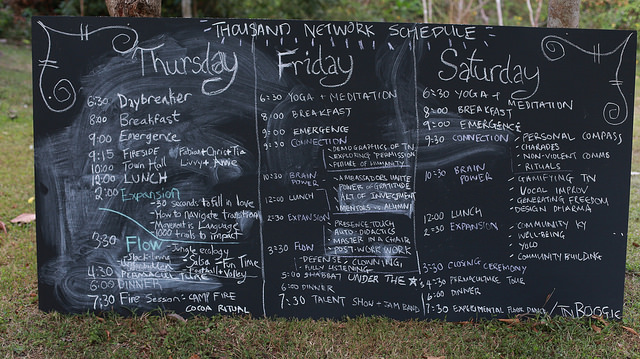 THOUSAND NETWORK SCHEDULE
Thursday
6:30 Daybreaker
8:00 Breakfast
9:00 Emergence
9:15 FIRESIDE Fabian + Chris + Tia
Livvy + Annie
10:00 Town Hall
12:00 LUNCH
2:00 Expansion
-30 seconds to fall in love
-How to navigate transition
Movement is Language
1000 trials to impact
3:30 Flow
-Jungle ecology
-Slacklining
-Salsa Fun Time
Football + Volley
4:30
6:00 DINNER
7:30 Fire Session: CAMP FIRE
COCOA RITUAL
Friday
6:30 YOGA + MEDITATION
8:00 BREAKFAST
9:00 EMERGENCE
9:30 CONNECTION
-DEMOGRAPHICS OF TN
-EXPLORING PERMISSION
-FUTURE OF HUMANITY
10:30 BRAIN POWER
-AMBASSADORS UNITE
POWER OF GRATITUDE
ALT OF INVESTMENT
MENTORS
12:00 LUNCH
2:30 EXPANSION
PRESENCE TOUCH
AUTO-DIDACTICS
MASTER IN A CHAIR
POST-WORK WORK
3:30 FLOW
-DEFENSE, CLOWNING,
FULLY LISTENING
5:00 SHABBAT UNDER THE ★
6:00 DINNER
7:30 TALENT SHOW + JAM BAND
Saturday
6:30 YOGA + MEDITATION
8:00 BREAKFAST
9:00 EMERGENCE
9:30 CONNECTION
- PERSONAL COMPASS
- CHARADES
- NON-VIOLENT COMMS
- RITUALS
10:30 BRAIN POWER
- GAMIFYING TN
- VOCAL IMPROV
- GENERATING FREEDOM
DESIGN DHARMA
12:00 LUNCH
2:30 EXPANSION
- COMMUNITY KY
- WELL-BEING
- YOLO
- COMMUNITY BUILDING
3:30 CLOSING CEREMONY
4:30 PERMACULTURE TOUR
6:00 DINNER
7:30 EXPERIMENTAL FLOOR DANCE / TN BOOGIE